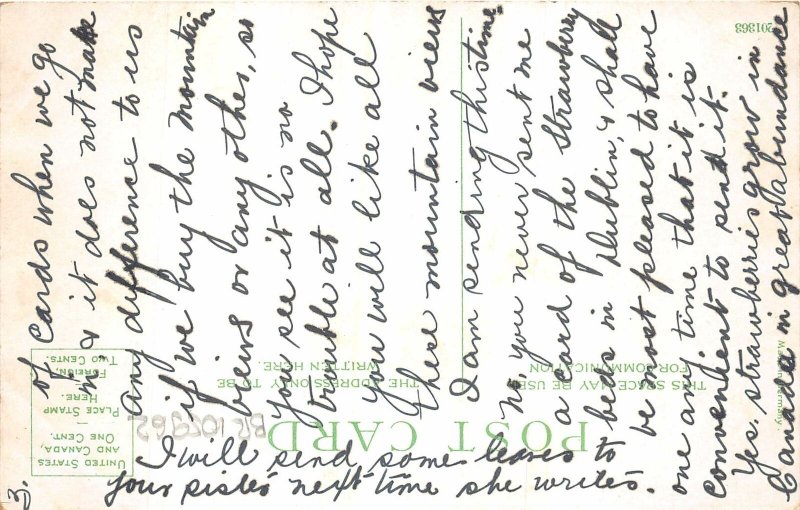 3.
of cards when we go
in & it does not make
any difference to us
if we buy the mountain
views or any other, so
you see it is no
trouble at all. I hope
you will like all
these mountain views
I am sending this time.
No, you never sent me
a card of the Strawberry
beds in Dublin, & shall
be most pleased to have
one any time that it is
convenient to send it.
Yes, strawberries grow in
Canada in great abundance
I will send some leaves to
your sister next time she writes.
POST CARD
THIS SPACE MAY BE USED
FOR COMMUNICATION
THE ADDRESS ONLY TO BE
WRITTEN HERE.
UNITED STATES
AND CANADA,
ONE CENT.
PLACE STAMP
HERE.
FOREIGN,
TWO CENTS.
201363
Germany